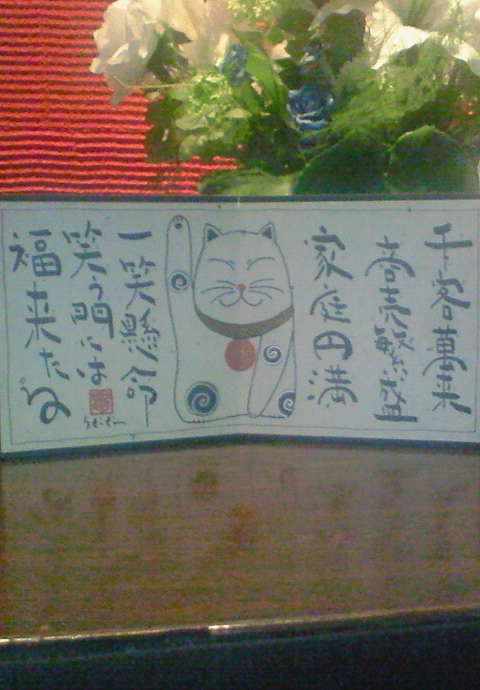 千客萬来
商売繁盛
家庭円満
一笑懸命
笑う門には
福来たる